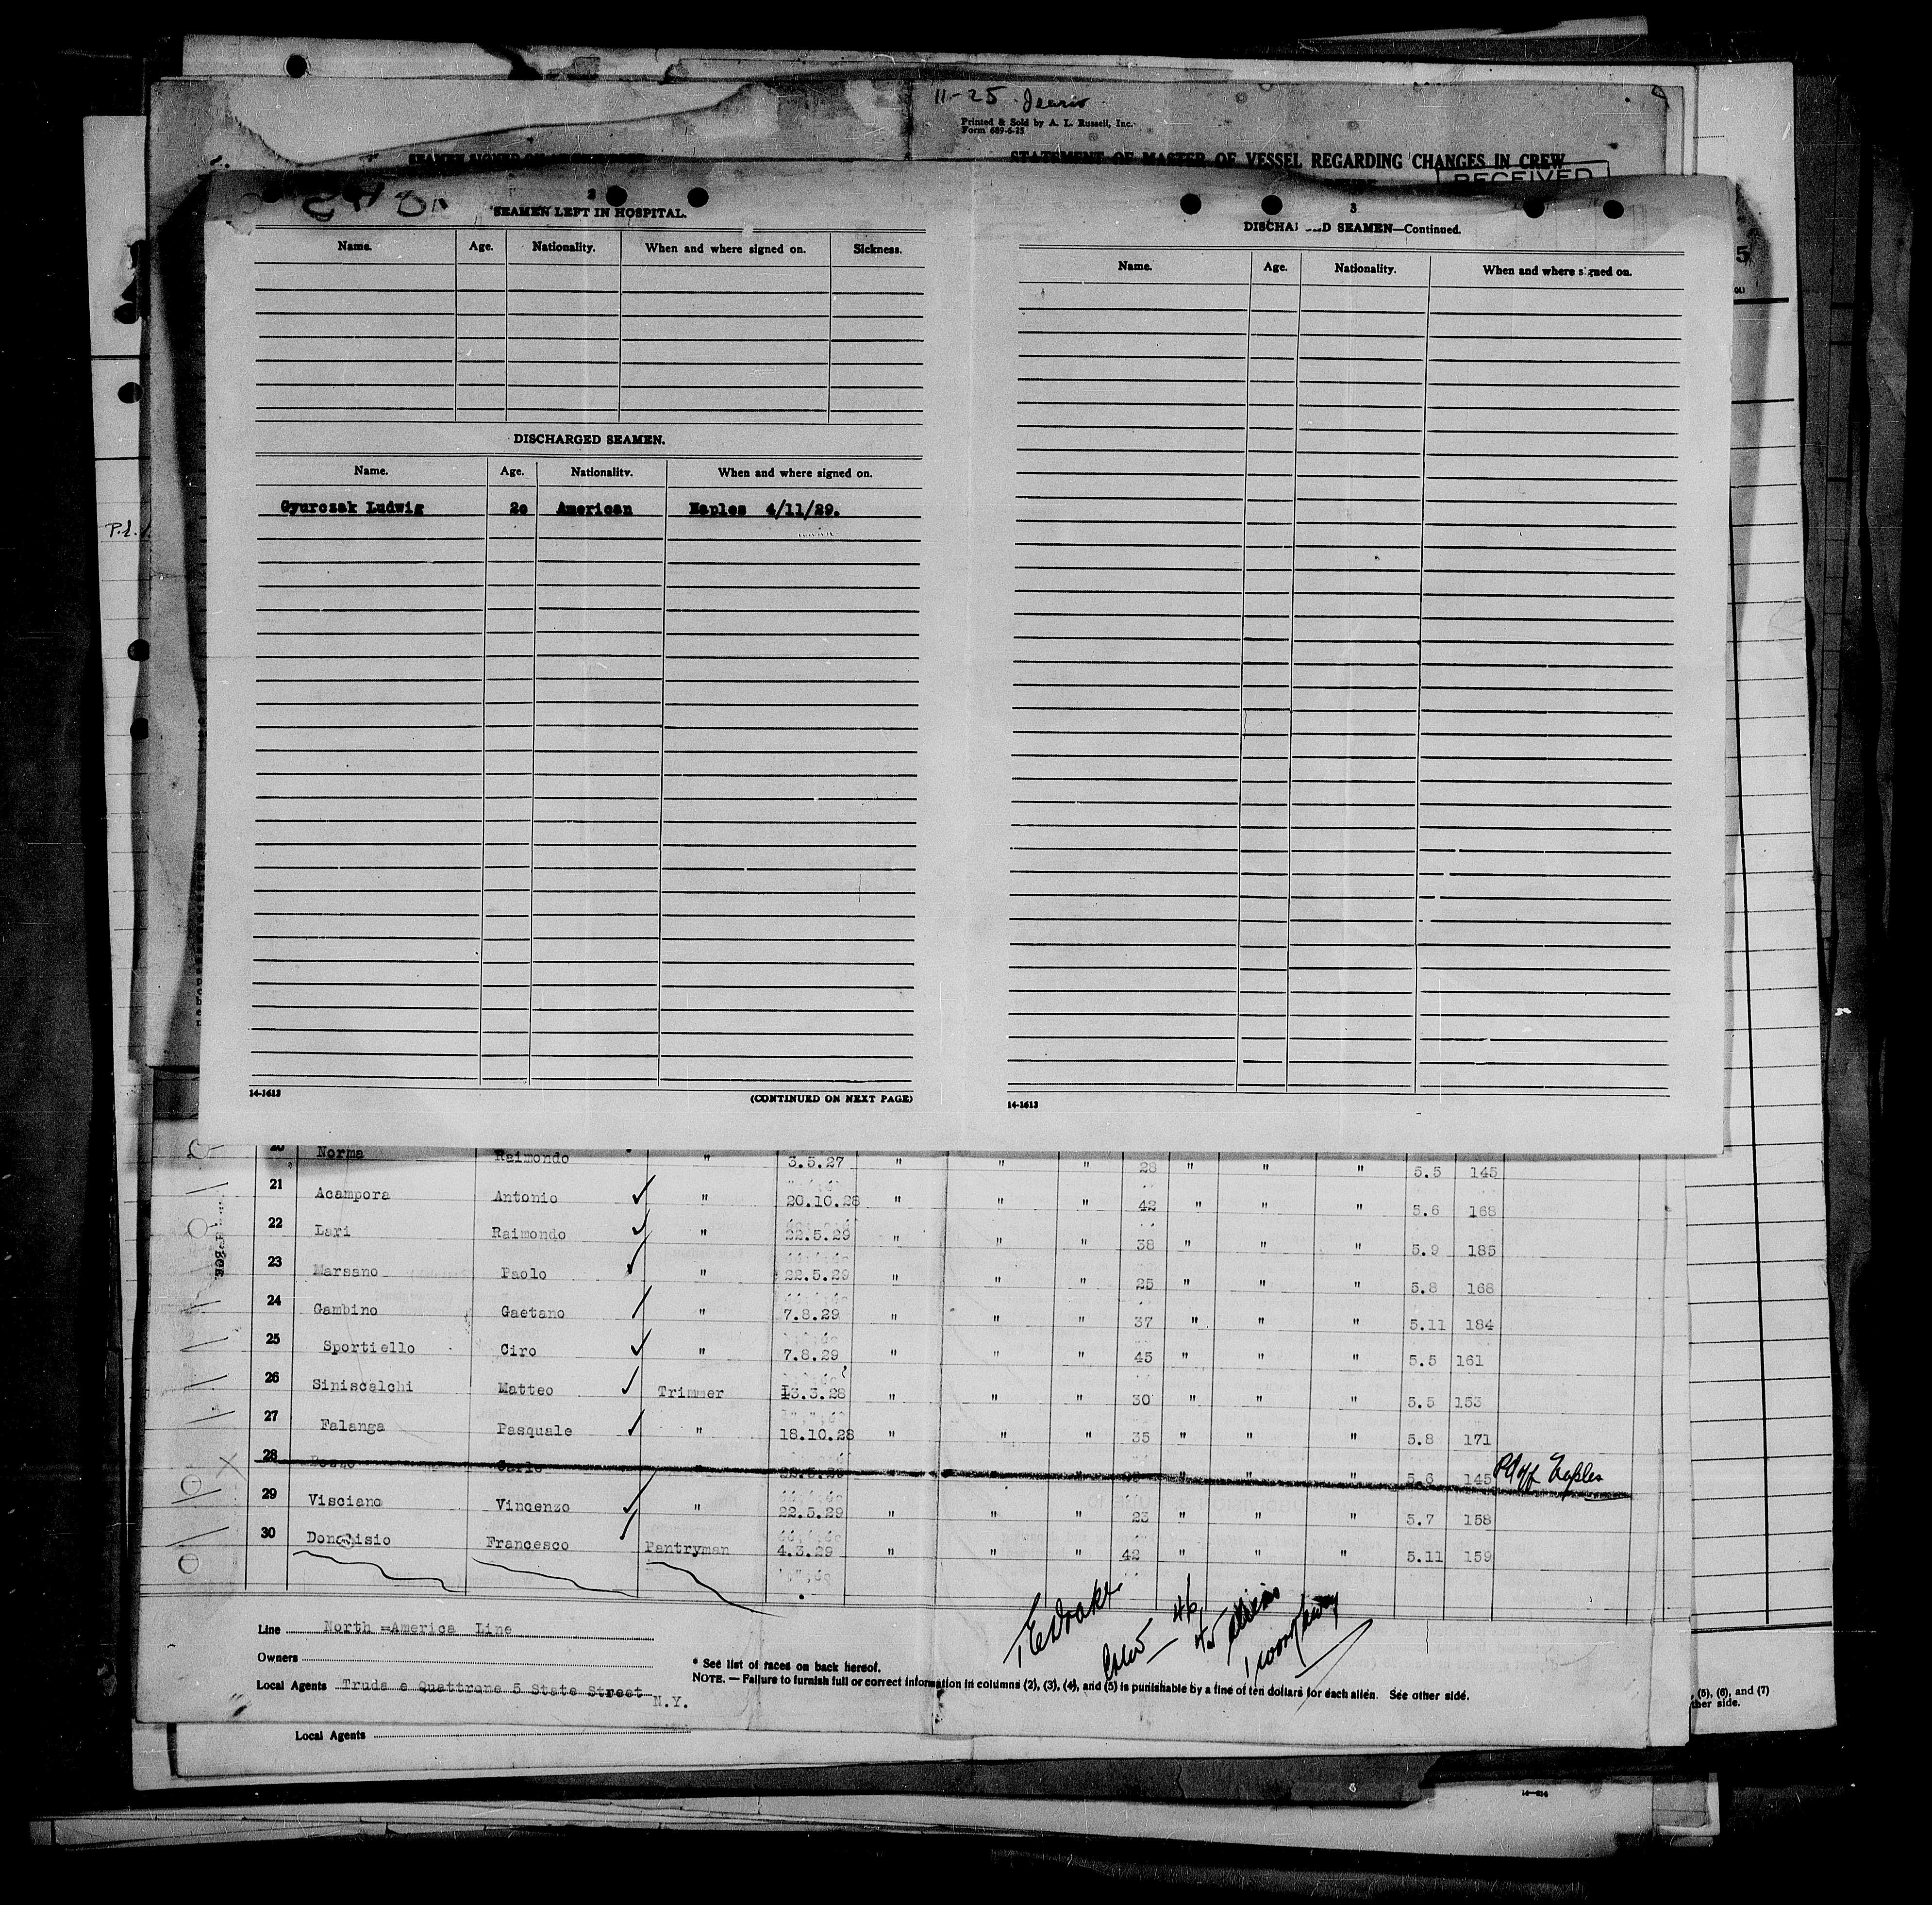 11-25
Printed & Sold by A. L. Russell, Inc.
Form 689-6-25
STATEMENT OF MASTER OF VESSEL REGARDING CHANGES IN CREW
RECEIVED
2
SEAMEN LEFT IN HOSPITAL.
Name. Age. Nationality. When and where signed on. Sickness.
DISCHARGED SEAMEN.
Name. Age. Nationality. When and where signed on.
Gyurczak Ludwig 2o American Naples 4/11/29.
14-1613 (CONTINUED ON NEXT PAGE)
3
DISCHA D SEAMEN—Continued.
Name. Age. Nationality. When and where signed on.
14-1613
5
P.l.
20 Norma Raimondo " 3.5.27 " " " 28 " " " 5.5 145
21 Acampora Antonio ✓ " 20.10.28 " " " 42 " " " 5.6 168
22 Lari Raimondo ✓ " 22.5.29 " " " 38 " " " 5.9 185
23 Marsano Paolo ✓ " 22.5.29 " " " 25 " " " 5.8 168
24 Gambino Gaetano / " 7.8.29 " " " 37 " " " 5.11 184
25 Sportiello Ciro ✓ " 7.8.29 " " " 45 " " " 5.5 161
26 Siniscalchi Matteo ✓ Trimmer 13.3.28 " " " 30 " " " 5.5 153
27 Falanga Pasquale ✓ " 18.10.28 " " " 35 " " " 5.8 171
28 Carlo " 22.5.29 " " " " " " 5.6 145 Pd off Naples
29 Visciano Vincenzo ✓ " 22.5.29 " " " 23 " " " 5.7 158
30 Dondisio Francesco ✓ Pantryman 4.3.29 " " " 42 " " " 5.11 159
Line North =America Line
Owners
Local Agents Truda e Quattrone 5 State Street N.Y.
* See list of races on back hereof.
NOTE. — Failure to furnish full or correct information in columns (2), (3), (4), and (5) is punishable by a fine of ten dollars for each alien. See other side.
46
45 aliens
, (5), (6), and (7)
ther side.
Local Agents